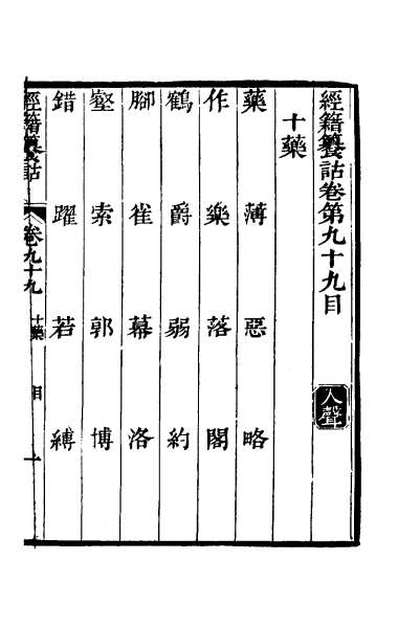 經籍籑詁卷第九十九目 入聲
十藥
藥 薄 惡 略
作 樂 落 閣
鶴 爵 弱 約
腳 雀 幕 洛
壑 索 郭 博
錯 躍 若 縛
經籍籑詁 卷九十九 十藥 目 一